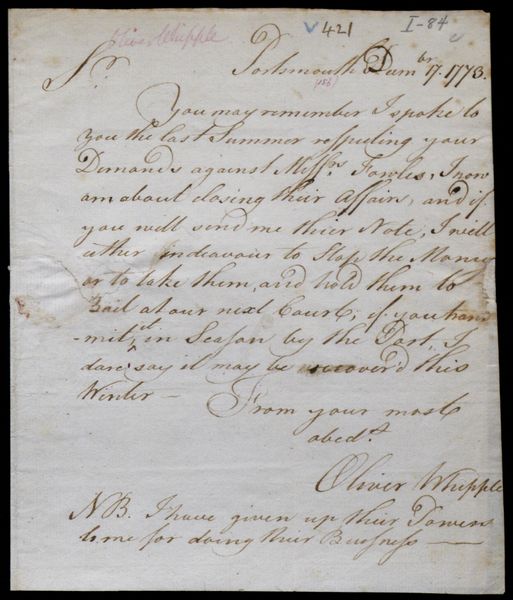 Oliver Whipple
421
I-84
Sr. Portsmouth Decembr. 17. 1773.
You may remember I spoke to
you the last Summer respecting your
Demands against Messrs. Fowles, I now
am about closing their Affairs, and if
you will send me thier Note, I will
either Endeavour to Stop the Money
or to take them, and hold them to
Bail at our next Court, if you trans
-mit it in Season by the Post, I
dare say it may be recover'd this
Winter —
From your most
obedt.
Oliver Whipple
NB. I have given up their Powers
to me for doing their Buisness —